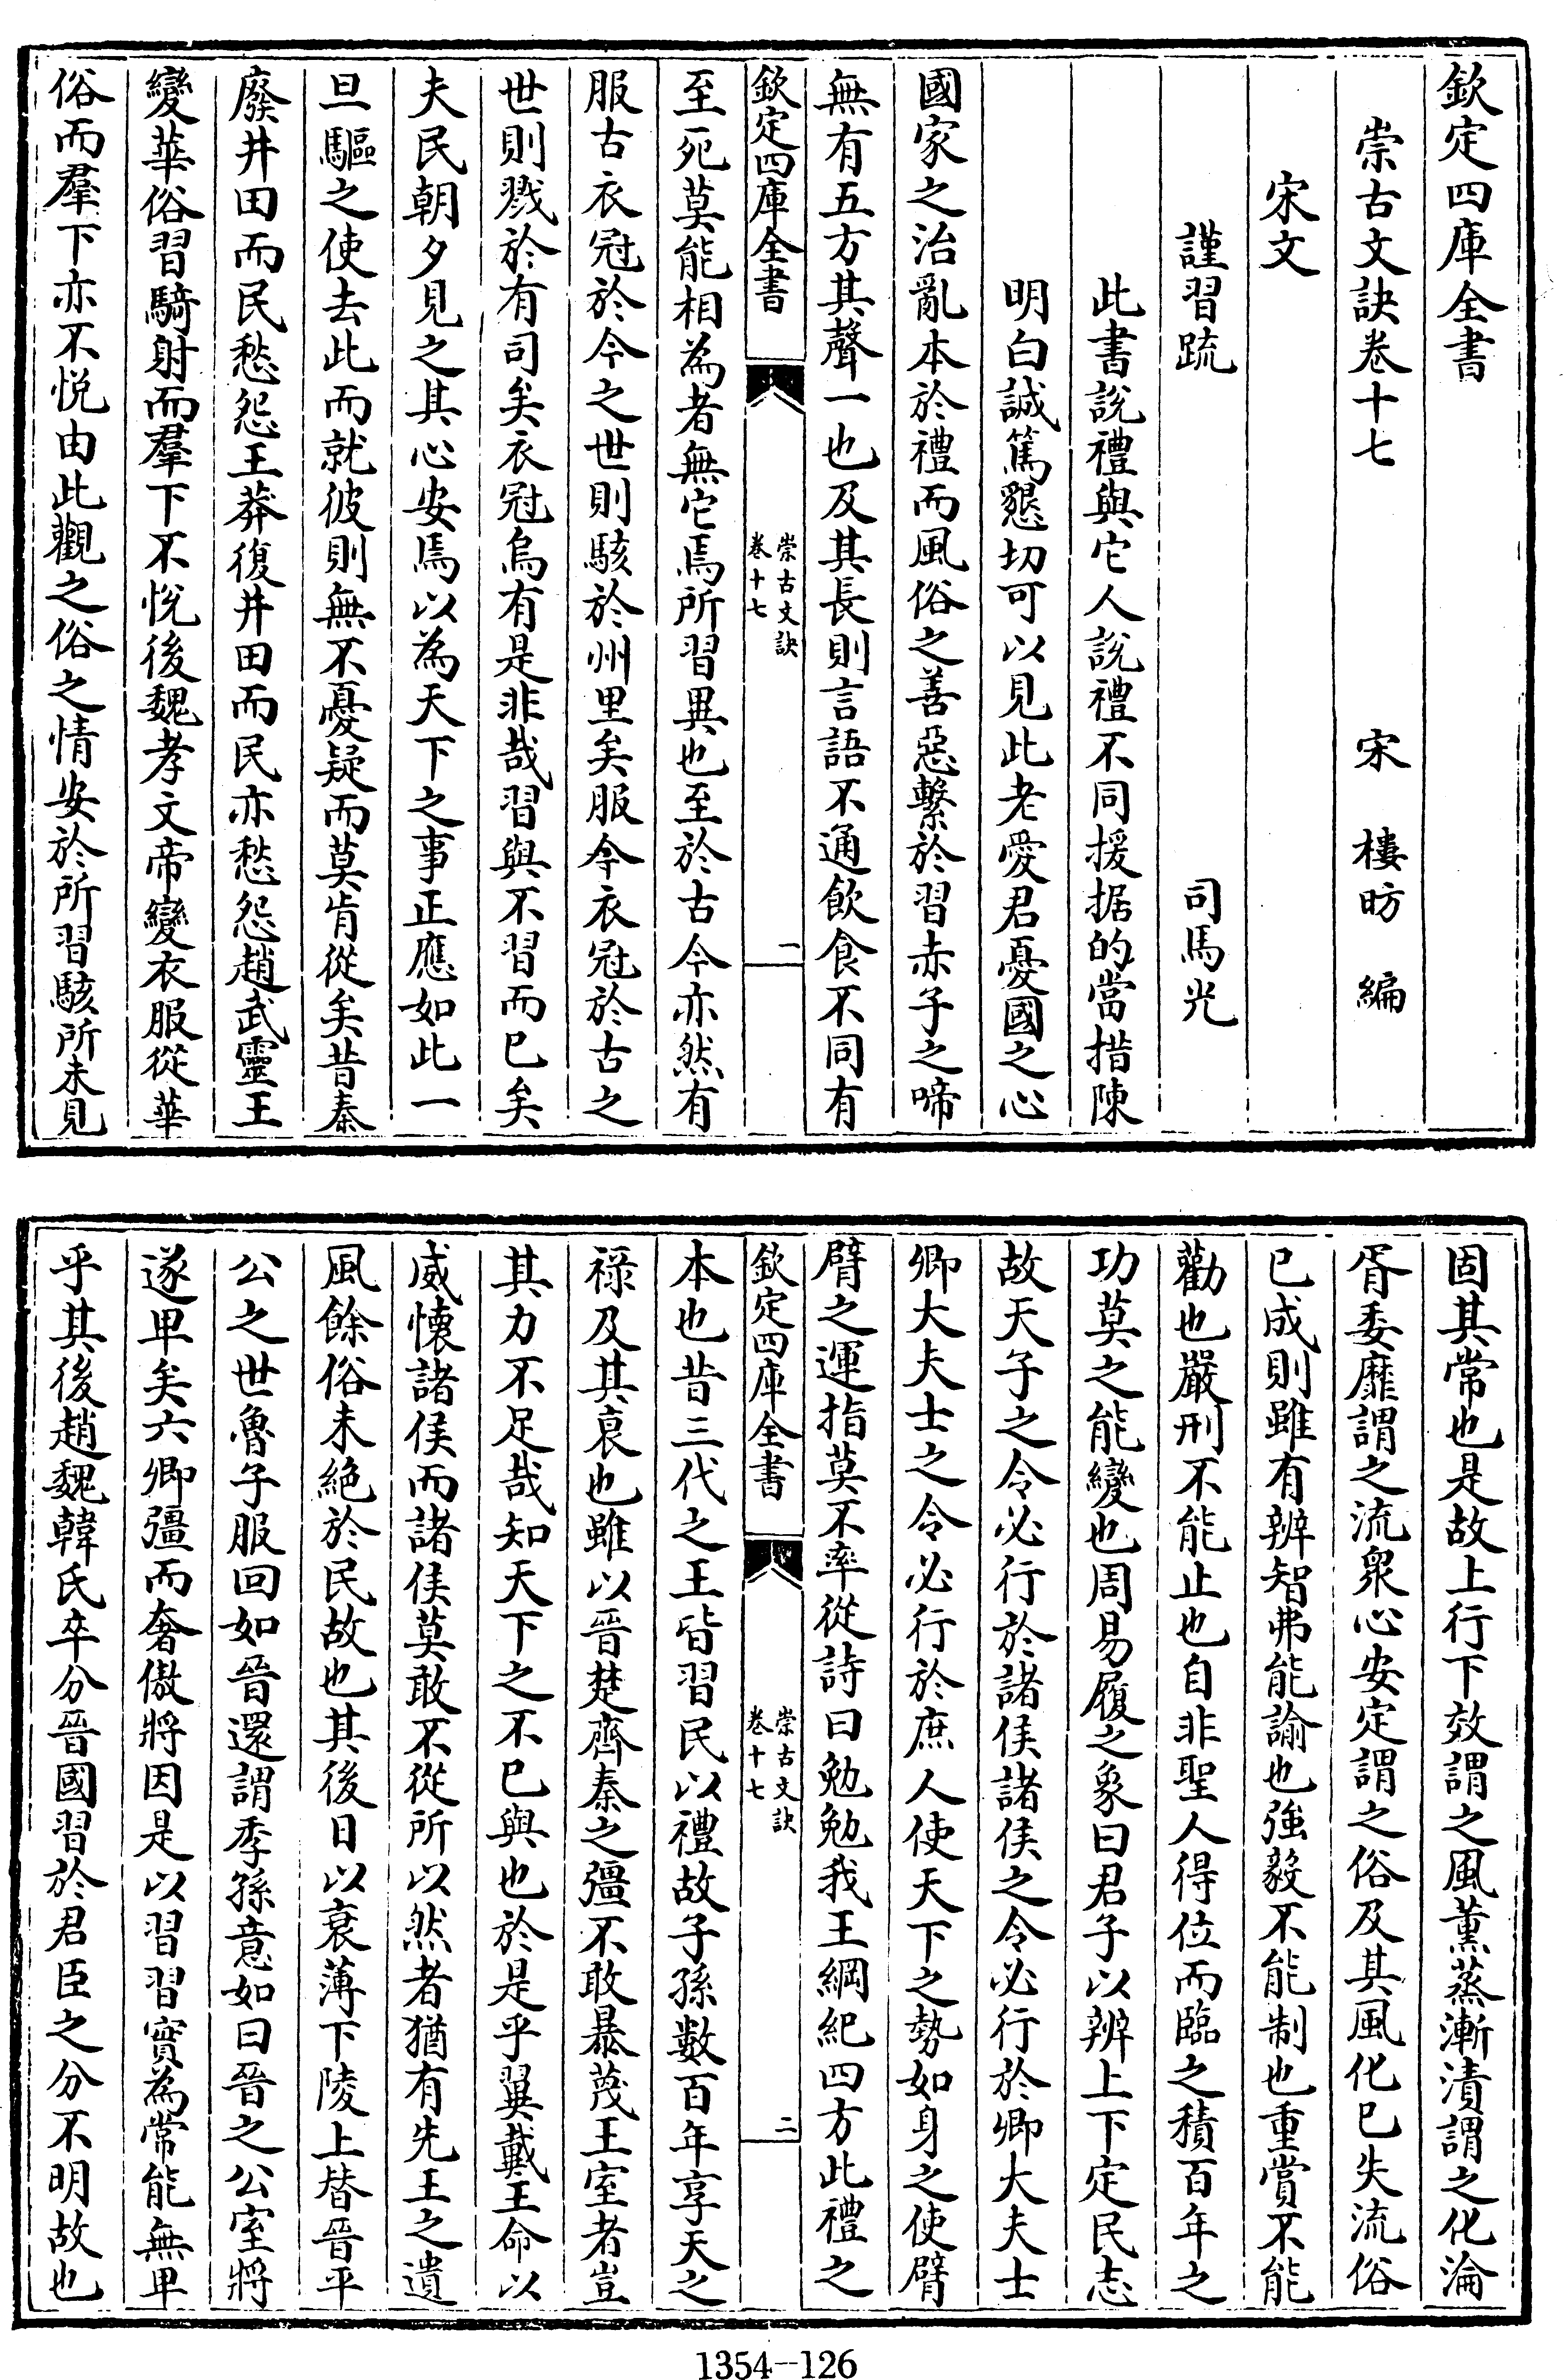 欽定四庫全書
崇古文訣卷十七　宋　樓昉　編
宋文
謹習疏　司馬光
此書說禮與它人說禮不同援据的當措陳
明白誠篤懇切可以見此老愛君憂國之心
國家之治亂本於禮而風俗之善惡繫於習赤子之啼
無有五方其聲一也及其長則言語不通飲食不同有
欽定四庫全書
崇古文訣
卷十七
一
至死莫能相為者無它焉所習異也至於古今亦然有
服古衣冠於今之世則駭於州里矣服今衣冠於古之
世則戮於有司矣衣冠烏有是非哉習與不習而已矣
夫民朝夕見之其心安焉以為天下之事正應如此一
旦驅之使去此而就彼則無不憂疑而莫肯從矣昔秦
廢井田而民愁怨王莽復井田而民亦愁怨趙武靈王
變華俗習騎射而羣下不悅後魏孝文帝變衣服從華
俗而羣下亦不悅由此觀之俗之情安於所習駭所未見
固其常也是故上行下效謂之風薰蒸漸漬謂之化淪
胥委靡謂之流衆心安定謂之俗及其風化已失流俗
已成則雖有辨智弗能諭也強毅不能制也重賞不能
勸也嚴刑不能止也自非聖人得位而臨之積百年之
功莫之能變也周易履之象曰君子以辨上下定民志
故天子之令必行於諸侯諸侯之令必行於卿大夫士
卿大夫士之令必行於庶人使天下之勢如身之使臂
臂之運指莫不率從詩曰勉勉我王綱紀四方此禮之
欽定四庫全書
崇古文訣
卷十七
二
本也昔三代之王皆習民以禮故子孫數百年享天之
祿及其衰也雖以晉楚齊秦之彊不敢暴蔑王室者豈
其力不足哉知天下之不已與也於是乎翼戴王命以
威懷諸侯而諸侯莫敢不從所以然者猶有先王之遺
風餘俗未絕於民故也其後日以衰薄下陵上替晉平
公之世魯子服回如晉還謂季孫意如曰晉之公室將
遂卑矣六卿彊而奢傲將因是以習習實為常能無卑
乎其後趙魏韓氏卒分晉國習於君臣之分不明故也
1354-126